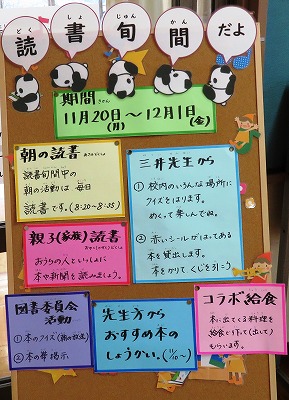 どくしょじゅんかん
読書旬間だよ
期間
きかん
11月20日～12月1日
(月) (金)
朝の読書
あさのどくしょ
読書旬間中の
朝の活動は 毎日
読書です。(8:20～8:35)
三井先生から
① 校内のいろんな場所に
クイズをはります。
めくって楽しんでね。
② 赤いシールがはってある
本を貸出します。
本をかりて くじを引こう
親子(家族)読書
おうちの人といっしょに
本や新聞を読みましょう。
図書委員会
活動
①本のクイズ(朝の放送)
②本の帯掲示
先生方から
おすすめ本の
しょうかい。(11/10～)
コラボ給食
本に出てくる料理を
給食で作って(出して)
もらいます。